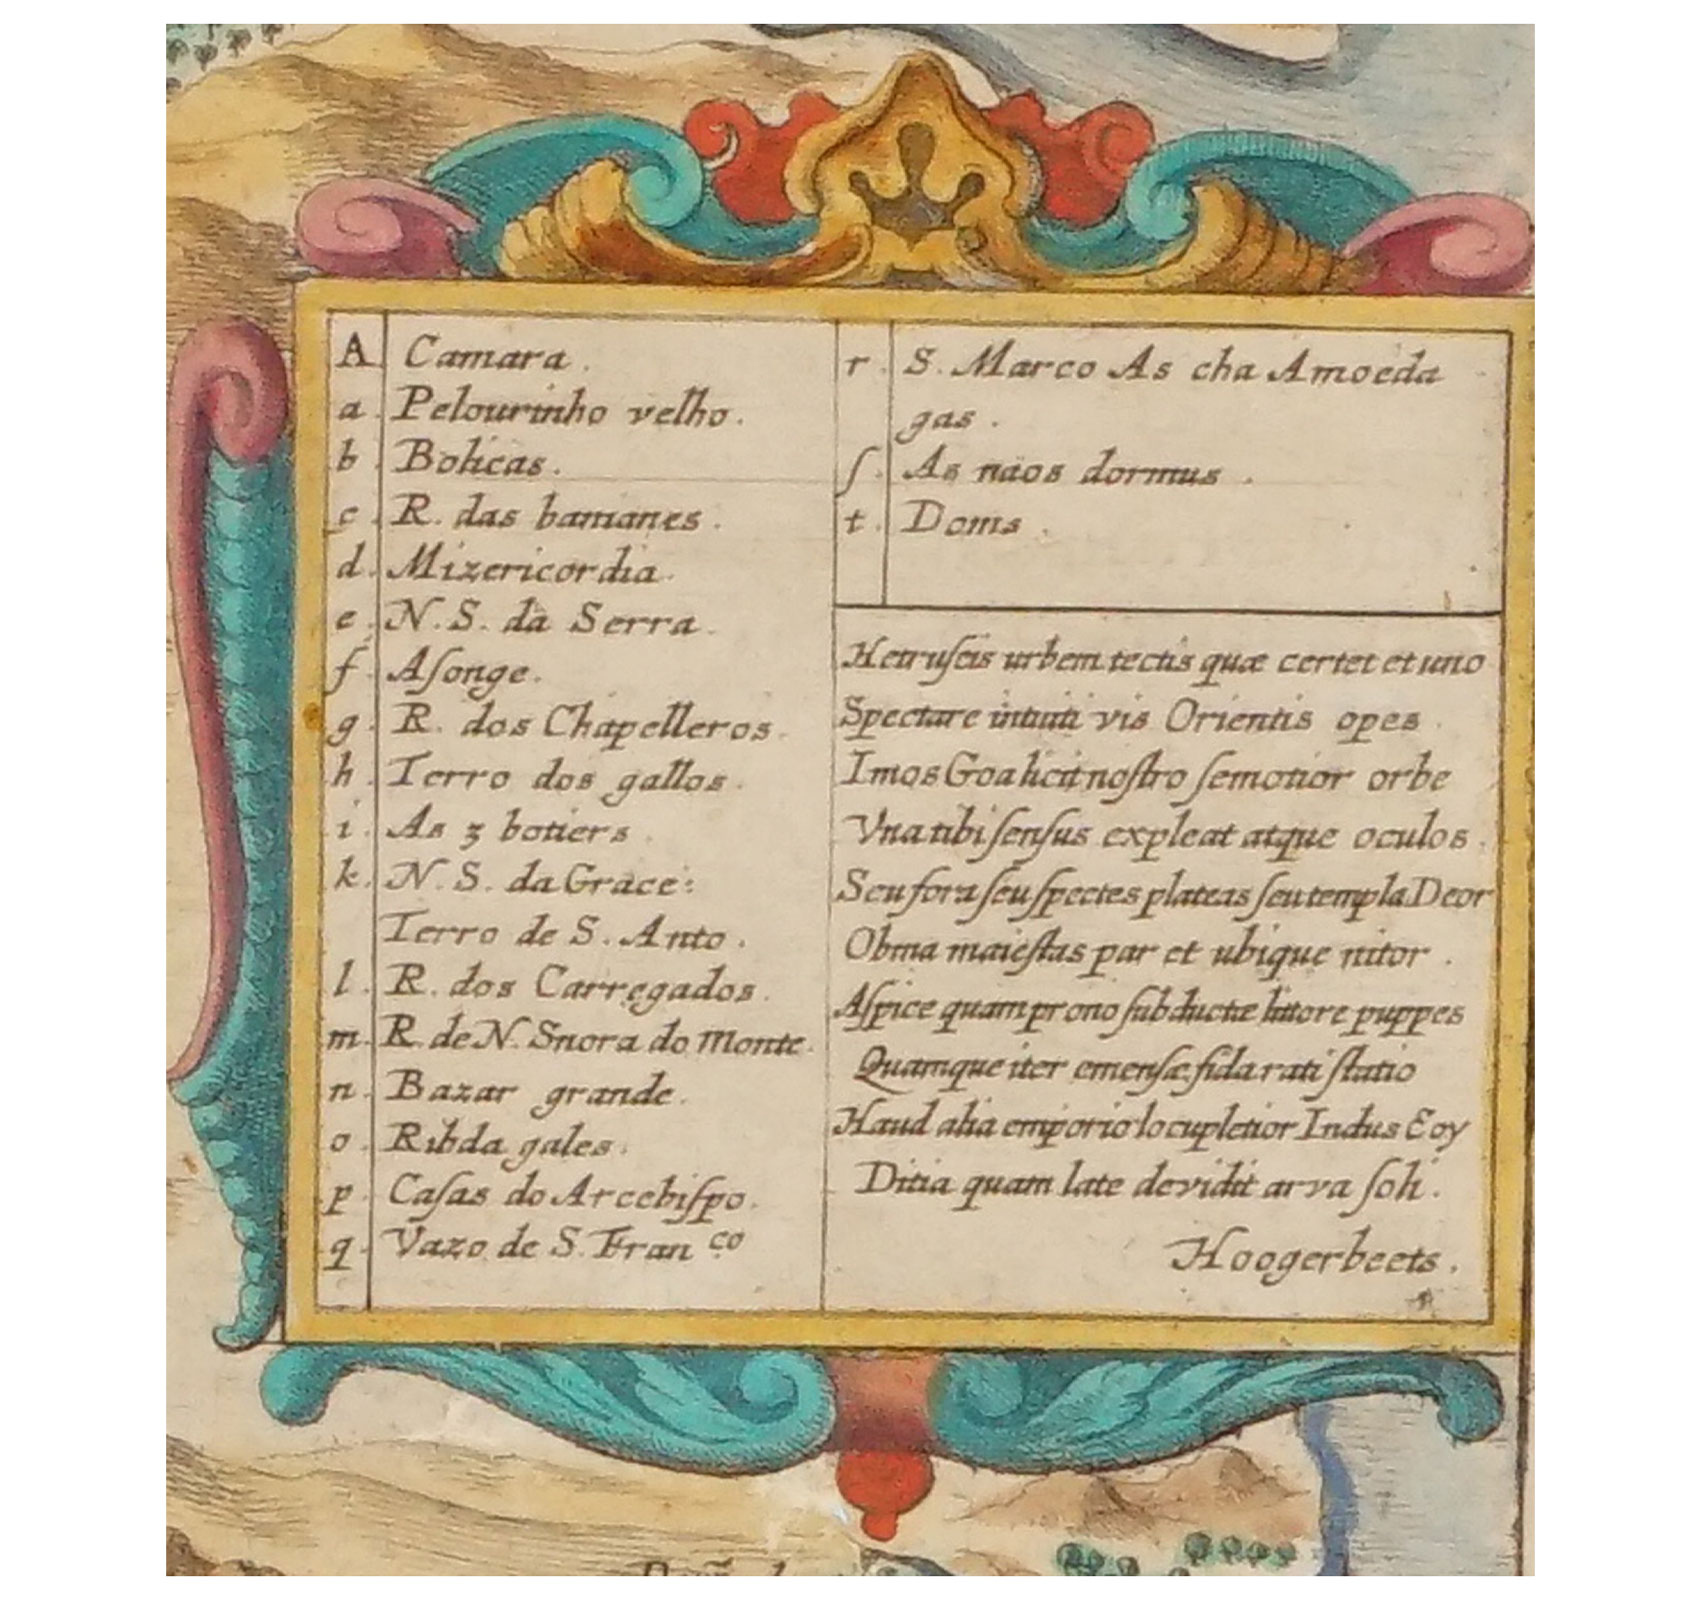 A Camara.
a. Pelourinho velho.
b. Boticas.
c. R. das banianes.
d. Mizericordia.
e. N. S. da Serra.
f. Aſonge.
g. R. dos Chapelleros.
h. Terro dos gallos.
i. As 3 botiers
k. N. S. da Grace:
Terro de S. Anto.
l. R. dos Carregados.
m. R. de N. Snora do Monte.
n. Bazar grande.
o. Ribda gales.
p. Caſas do Arcebiſpo.
q. Vazo de S. Franco
r. S. Marco As cha Amoeda
gas.
ſ. As naos dormus.
t. Doms.
Hetruſcis urbem tectis quæ certet et uno
Spectare intuiti vis Orientis opes.
Imos Goa licit noſtro ſemotior orbe
Vna tibi ſenſus expleat atque oculos.
Seu fora ſeu ſpectes plateas ſeu templa Deor
Obma maieſtas par et ubique nitor.
Aſpice quam prono ſubductæ littore puppes
Quamque iter emenſæ fida rati ſtatio
Haud alia emporio locupletior Indus Eoy
Ditia quam late devidit arva ſoli.
Hoogerbeets.